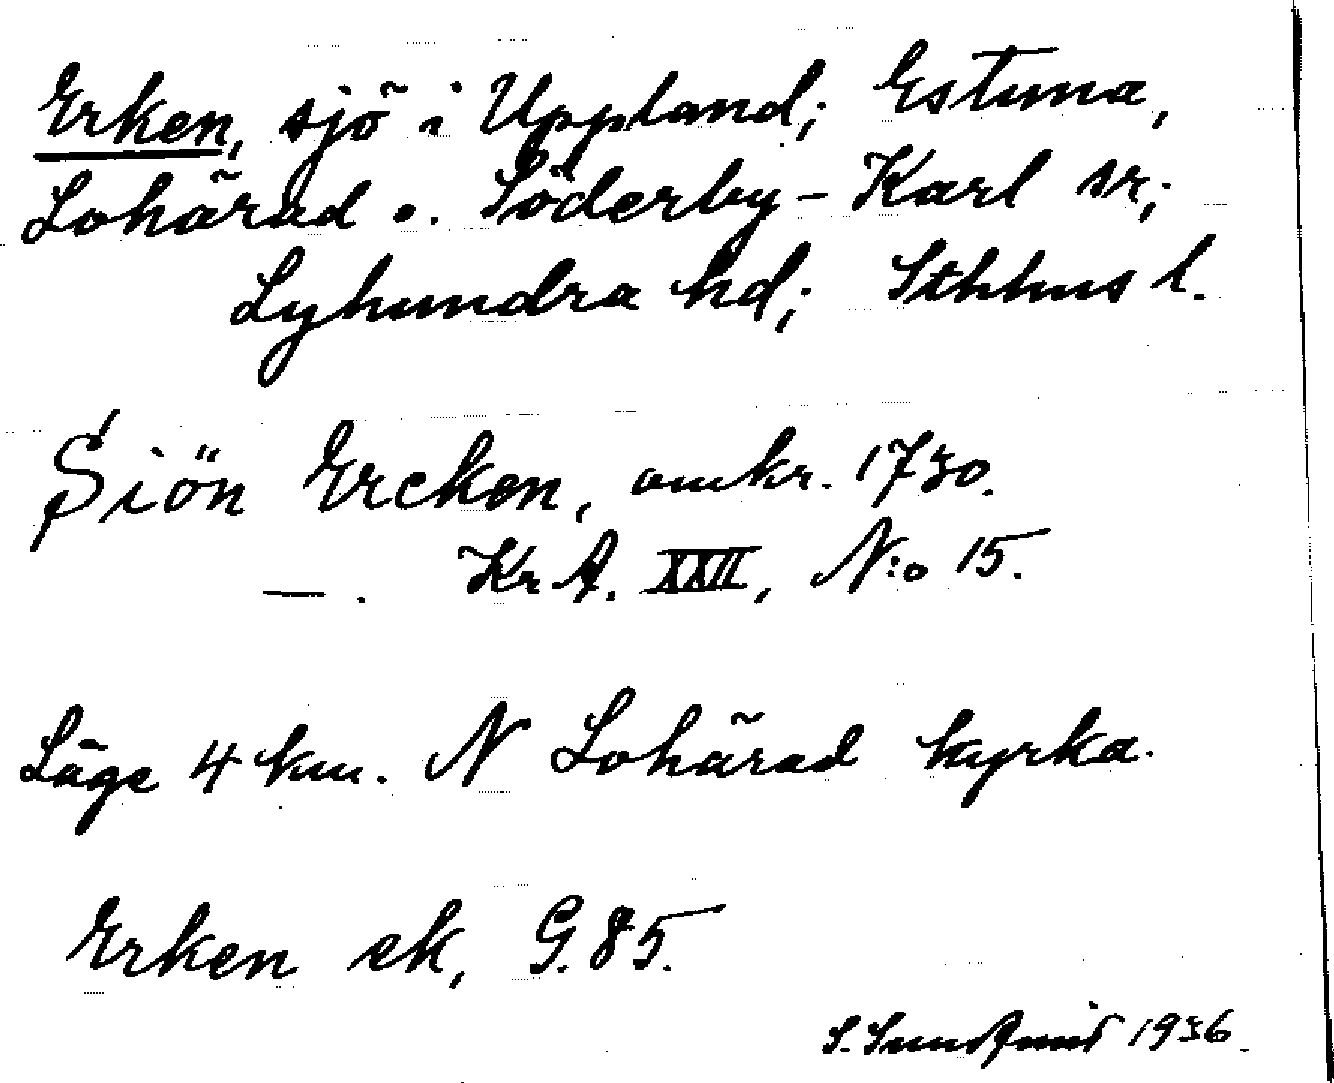 Erken, sjö i Uppland; Estuna,
Lohärad o. Söderby-Karl sr;
Lyhundra hd; Sthhus l.
Siön Ercken, omkr. 1730.
— . Kr.A. XXII, N:o 15.
Läge 4 km. N Lohärad kyrka.
Erken ek, G. 85.
S. Sundqvist 1936.